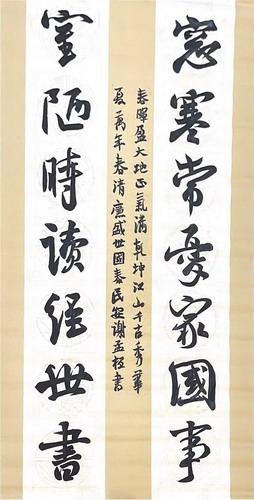 窓寒常憂家國事
春暉盈大地正氣滿乾坤江山千古秀華
夏萬年春清廉盛世國泰民安謝孟程書
室陋時读經世書